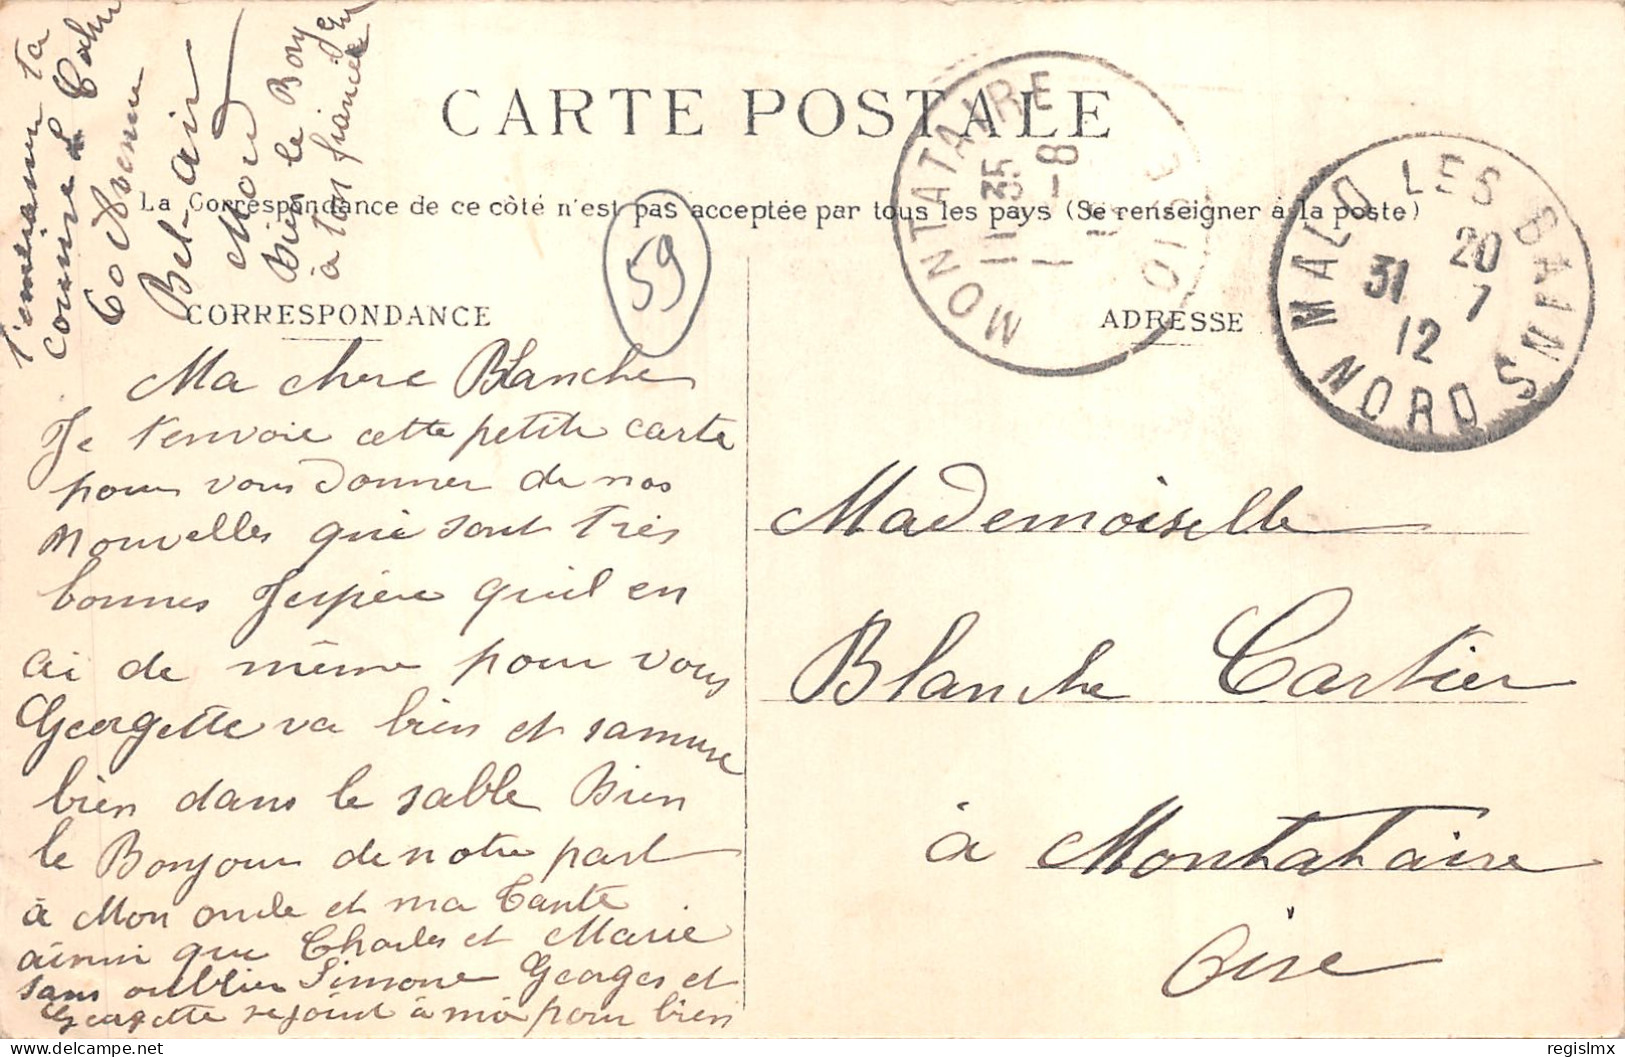 CARTE POSTALE
La Correspondance de ce côté n'est pas acceptée par tous les pays (Se renseigner à la poste)
CORRESPONDANCE
ADRESSE
59
MONTATAIRE
OISE
11 35
1 - 8
MALO LES BAINS
NORD
20
31 7
12
Ma chere Blanche
Je t'envoie cette petite carte
pour vous donner de nos
nouvelles qui sont très
bonnes Jespère quil en
ai de même pour vous
Georgette va bien et samuse
bien dans le sable Bien
le Bonjour de notre part
à Mon oncle et ma Tante
ainsi que Charles et Marie
sans oublier Simone Georges et
Georgette se joint à moi pour bien
ta
Cousine L
60 Avenue
Bel-air
Bien le Bonj
à ton fiancée
Mademoiselle
Blanche Cartier
à Montataire
Oise
delcampe.net
regislmx